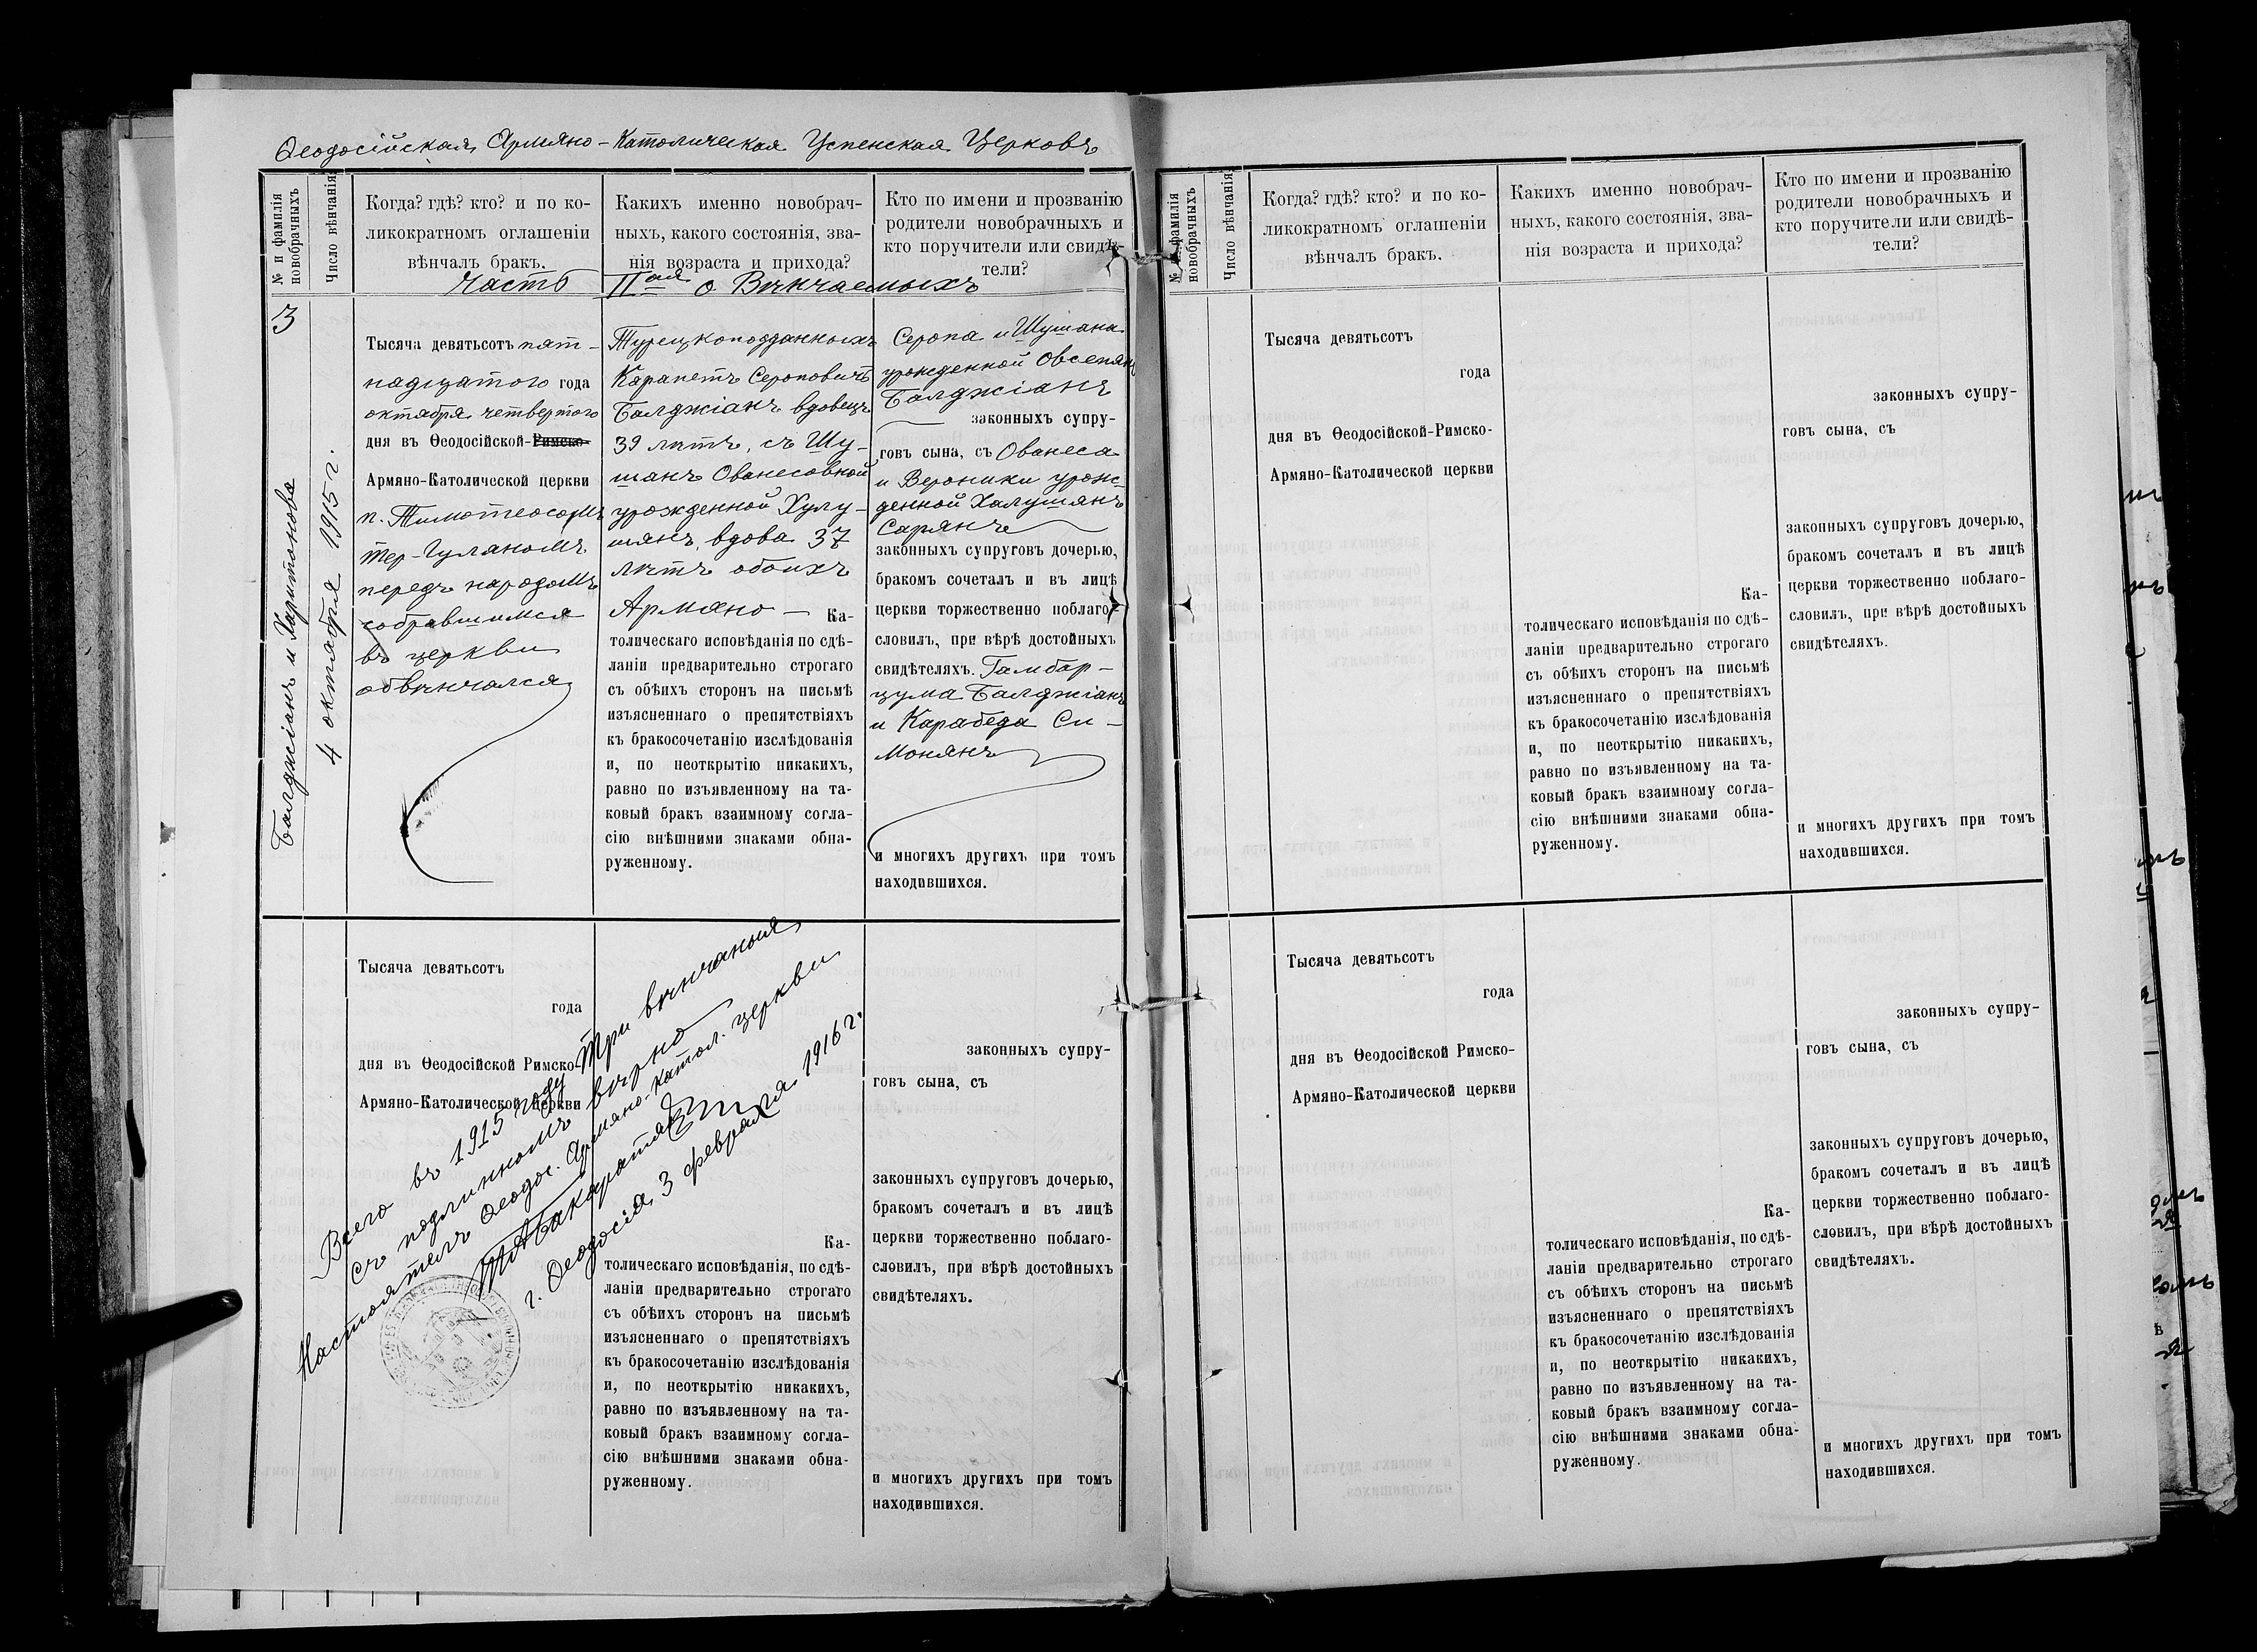 Ѳеодосійская Армяно-Католическая Успенская Церковь
№ и фамилія новобрачныхъ
Число вѣнчанія
Когда? гдѣ? кто? и по ко-
ликократномъ оглашеніи
вѣнчалъ бракъ.
Какихъ именно новобрач-
ныхъ, какого состоянія, зва-
нія возраста и прихода?
Кто по имени и прозванію
родители новобрачныхъ и
кто поручители или свидѣ-
тели?
Часть IIая о Вѣнчаемыхъ
3
Балджіанъ и Харитонова
4 октября 1915 г.
Тысяча девятьсотъ пят-
надцатого года
октября четвертого
дня въ Ѳеодосійской-Римско-
Армяно-Католической церкви
п. Тимотеосомъ
Тер-Гуляномъ
передъ народомъ
собравшимся
въ церкви
обвѣнчался
Турецкоподданныхъ
Карапетъ Сероповичъ
Балджіанъ вдовецъ
39 лѣтъ, съ Шу-
шанъ Ованесовной
урожденной Хулу-
шянъ, вдова 37
лѣтъ обоихъ
Армяно- Ка-
толическаго исповѣданія по сдѣ-
ланіи предварительно строгаго
съ обѣихъ сторонъ на письмѣ
изъясненнаго о препятствіяхъ
къ бракосочетанію изслѣдованія
и, по неоткрытію никакихъ,
равно по изъявленному на та-
ковый бракъ взаимному согла-
сію внѣшними знаками обна-
руженному.
Серопа и Шушана
урожденной Овсепянъ
Балджіанъ
законныхъ супру-
говъ сына, съ Ованеса
и Вероники урож-
денной Халушянъ
Сарянъ
законныхъ супруговъ дочерью,
бракомъ сочеталъ и въ лицѣ
церкви торжественно поблаго-
словилъ, при вѣрѣ достойныхъ
свидѣтеляхъ. Гамбар-
цума Балджіанъ
и Карабеда Си-
монянъ
и многихъ другихъ при томъ
находившихся.
Тысяча девятьсотъ
года
дня въ Ѳеодосійской Римско-
Армяно-Католической церкви
Всего въ 1915 году Три вѣнчанья
съ подлиннымъ вѣрно
Настоятель Ѳеодос. Армяно-Катол. церкви
г. Ѳеодосія, 3 февраля 1916 г.
Ка-
толическаго исповѣданія, по сдѣ-
ланіи предварительно строгаго
съ обѣихъ сторонъ на письмѣ
изъясненнаго о препятствіяхъ
къ бракосочетанію изслѣдованія
и, по неоткрытію никакихъ,
равно по изъявленному на та-
ковый бракъ взаимному согла-
сію внѣшними знаками обна-
руженному.
законныхъ супру-
говъ сына, съ
законныхъ супруговъ дочерью,
бракомъ сочеталъ и въ лицѣ
церкви торжественно поблаго-
словилъ, при вѣрѣ достойныхъ
свидѣтеляхъ.
и многихъ другихъ при томъ
находившихся.
№ и фамилія новобрачныхъ
Число вѣнчанія
Когда? гдѣ? кто? и по ко-
ликократномъ оглашеніи
вѣнчалъ бракъ.
Какихъ именно новобрач-
ныхъ, какого состоянія, зва-
нія возраста и прихода?
Кто по имени и прозванію
родители новобрачныхъ и
кто поручители или свидѣ-
тели?
Тысяча девятьсотъ
года
дня въ Ѳеодосійской-Римско-
Армяно-Католической церкви
Ка-
толическаго исповѣданія по сдѣ-
ланіи предварительно строгаго
съ обѣихъ сторонъ на письмѣ
изъясненнаго о препятствіяхъ
къ бракосочетанію изслѣдованія
и, по неоткрытію никакихъ,
равно по изъявленному на та-
ковый бракъ взаимному согла-
сію внѣшними знаками обна-
руженному.
законныхъ супру-
говъ сына, съ
законныхъ супруговъ дочерью,
бракомъ сочеталъ и въ лицѣ
церкви торжественно поблаго-
словилъ, при вѣрѣ достойныхъ
свидѣтеляхъ.
и многихъ другихъ при томъ
находившихся.
Тысяча девятьсотъ
года
дня въ Ѳеодосійской Римско-
Армяно-Католической церкви
Ка-
толическаго исповѣданія, по сдѣ-
ланіи предварительно строгаго
съ обѣихъ сторонъ на письмѣ
изъясненнаго о препятствіяхъ
къ бракосочетанію изслѣдованія
и, по неоткрытію никакихъ,
равно по изъявленному на та-
ковый бракъ взаимному согла-
сію внѣшними знаками обна-
руженному.
законныхъ супру-
говъ сына, съ
законныхъ супруговъ дочерью,
бракомъ сочеталъ и въ лицѣ
церкви торжественно поблаго-
словилъ, при вѣрѣ достойныхъ
свидѣтеляхъ.
и многихъ другихъ при томъ
находившихся.